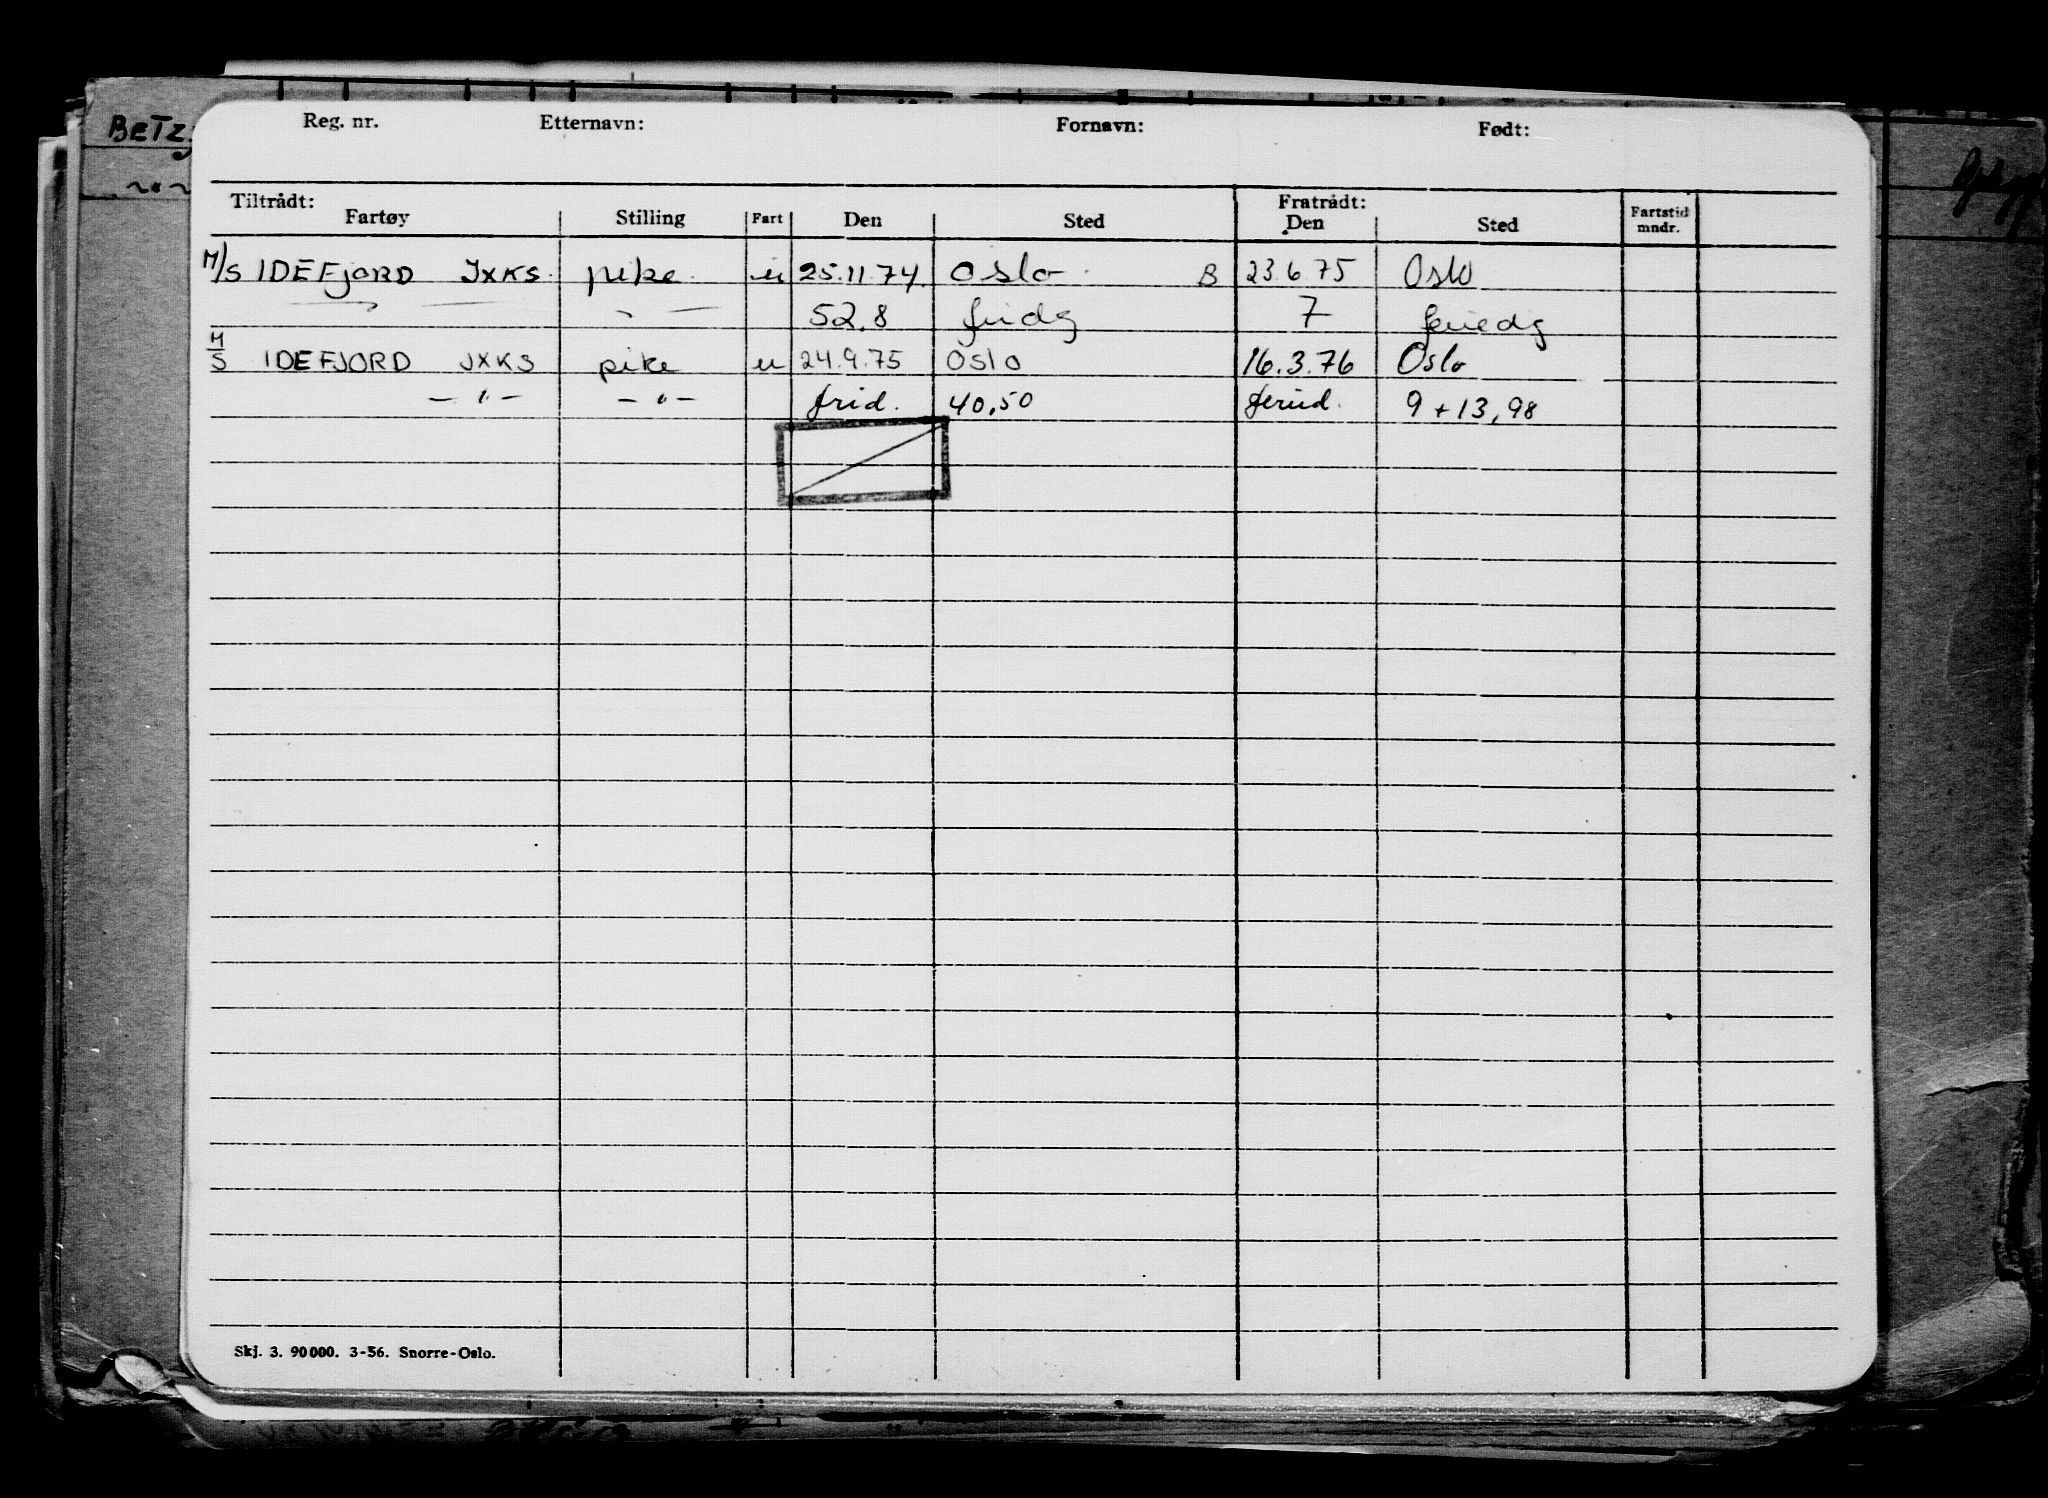 BeTz
Reg. nr. Etternavn: Fornavn: Født:
Tiltrådt: Fratrådt:
Fartøy Stilling Fart Den Sted Den Sted Fartstid mndr.
M/S IDEFJORD JXKS. pike. u 25.11.74. Oslo. B 23.6.75 Oslo
52.8 fridg 7 feriedg
M/S IDEFJORD JXKS pike u 24.9.75 Oslo 16.3.76 Oslo
— " — — " — frid. 40,50 feried. 9 + 13,98
Skj. 3. 90000. 3-56. Snorre-Oslo.